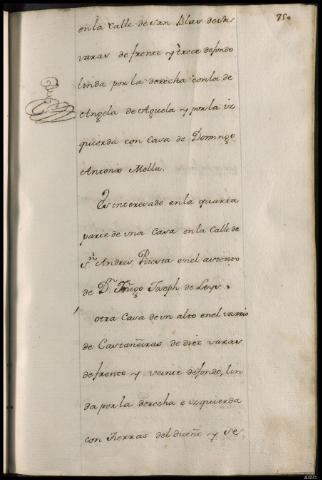 75.
en la Calle de San Blas de seis
varas de frente y trece de fondo
linda por la derecha con la de
Angela de Aguela y por la iz
quierda con Casa de Domingo
Antonio Mella.
Es interesado en la quarta
parte de una Casa en la Calle de
Sn Andres Puesta en el asiento
de Dn Iñigo Joseph de
otra Casa de un alto en el varrio
de Castañeiras de diez varas
de frente y veinte de fondo, lin
da por la derecha e izquierda
con tierras del dueño y se